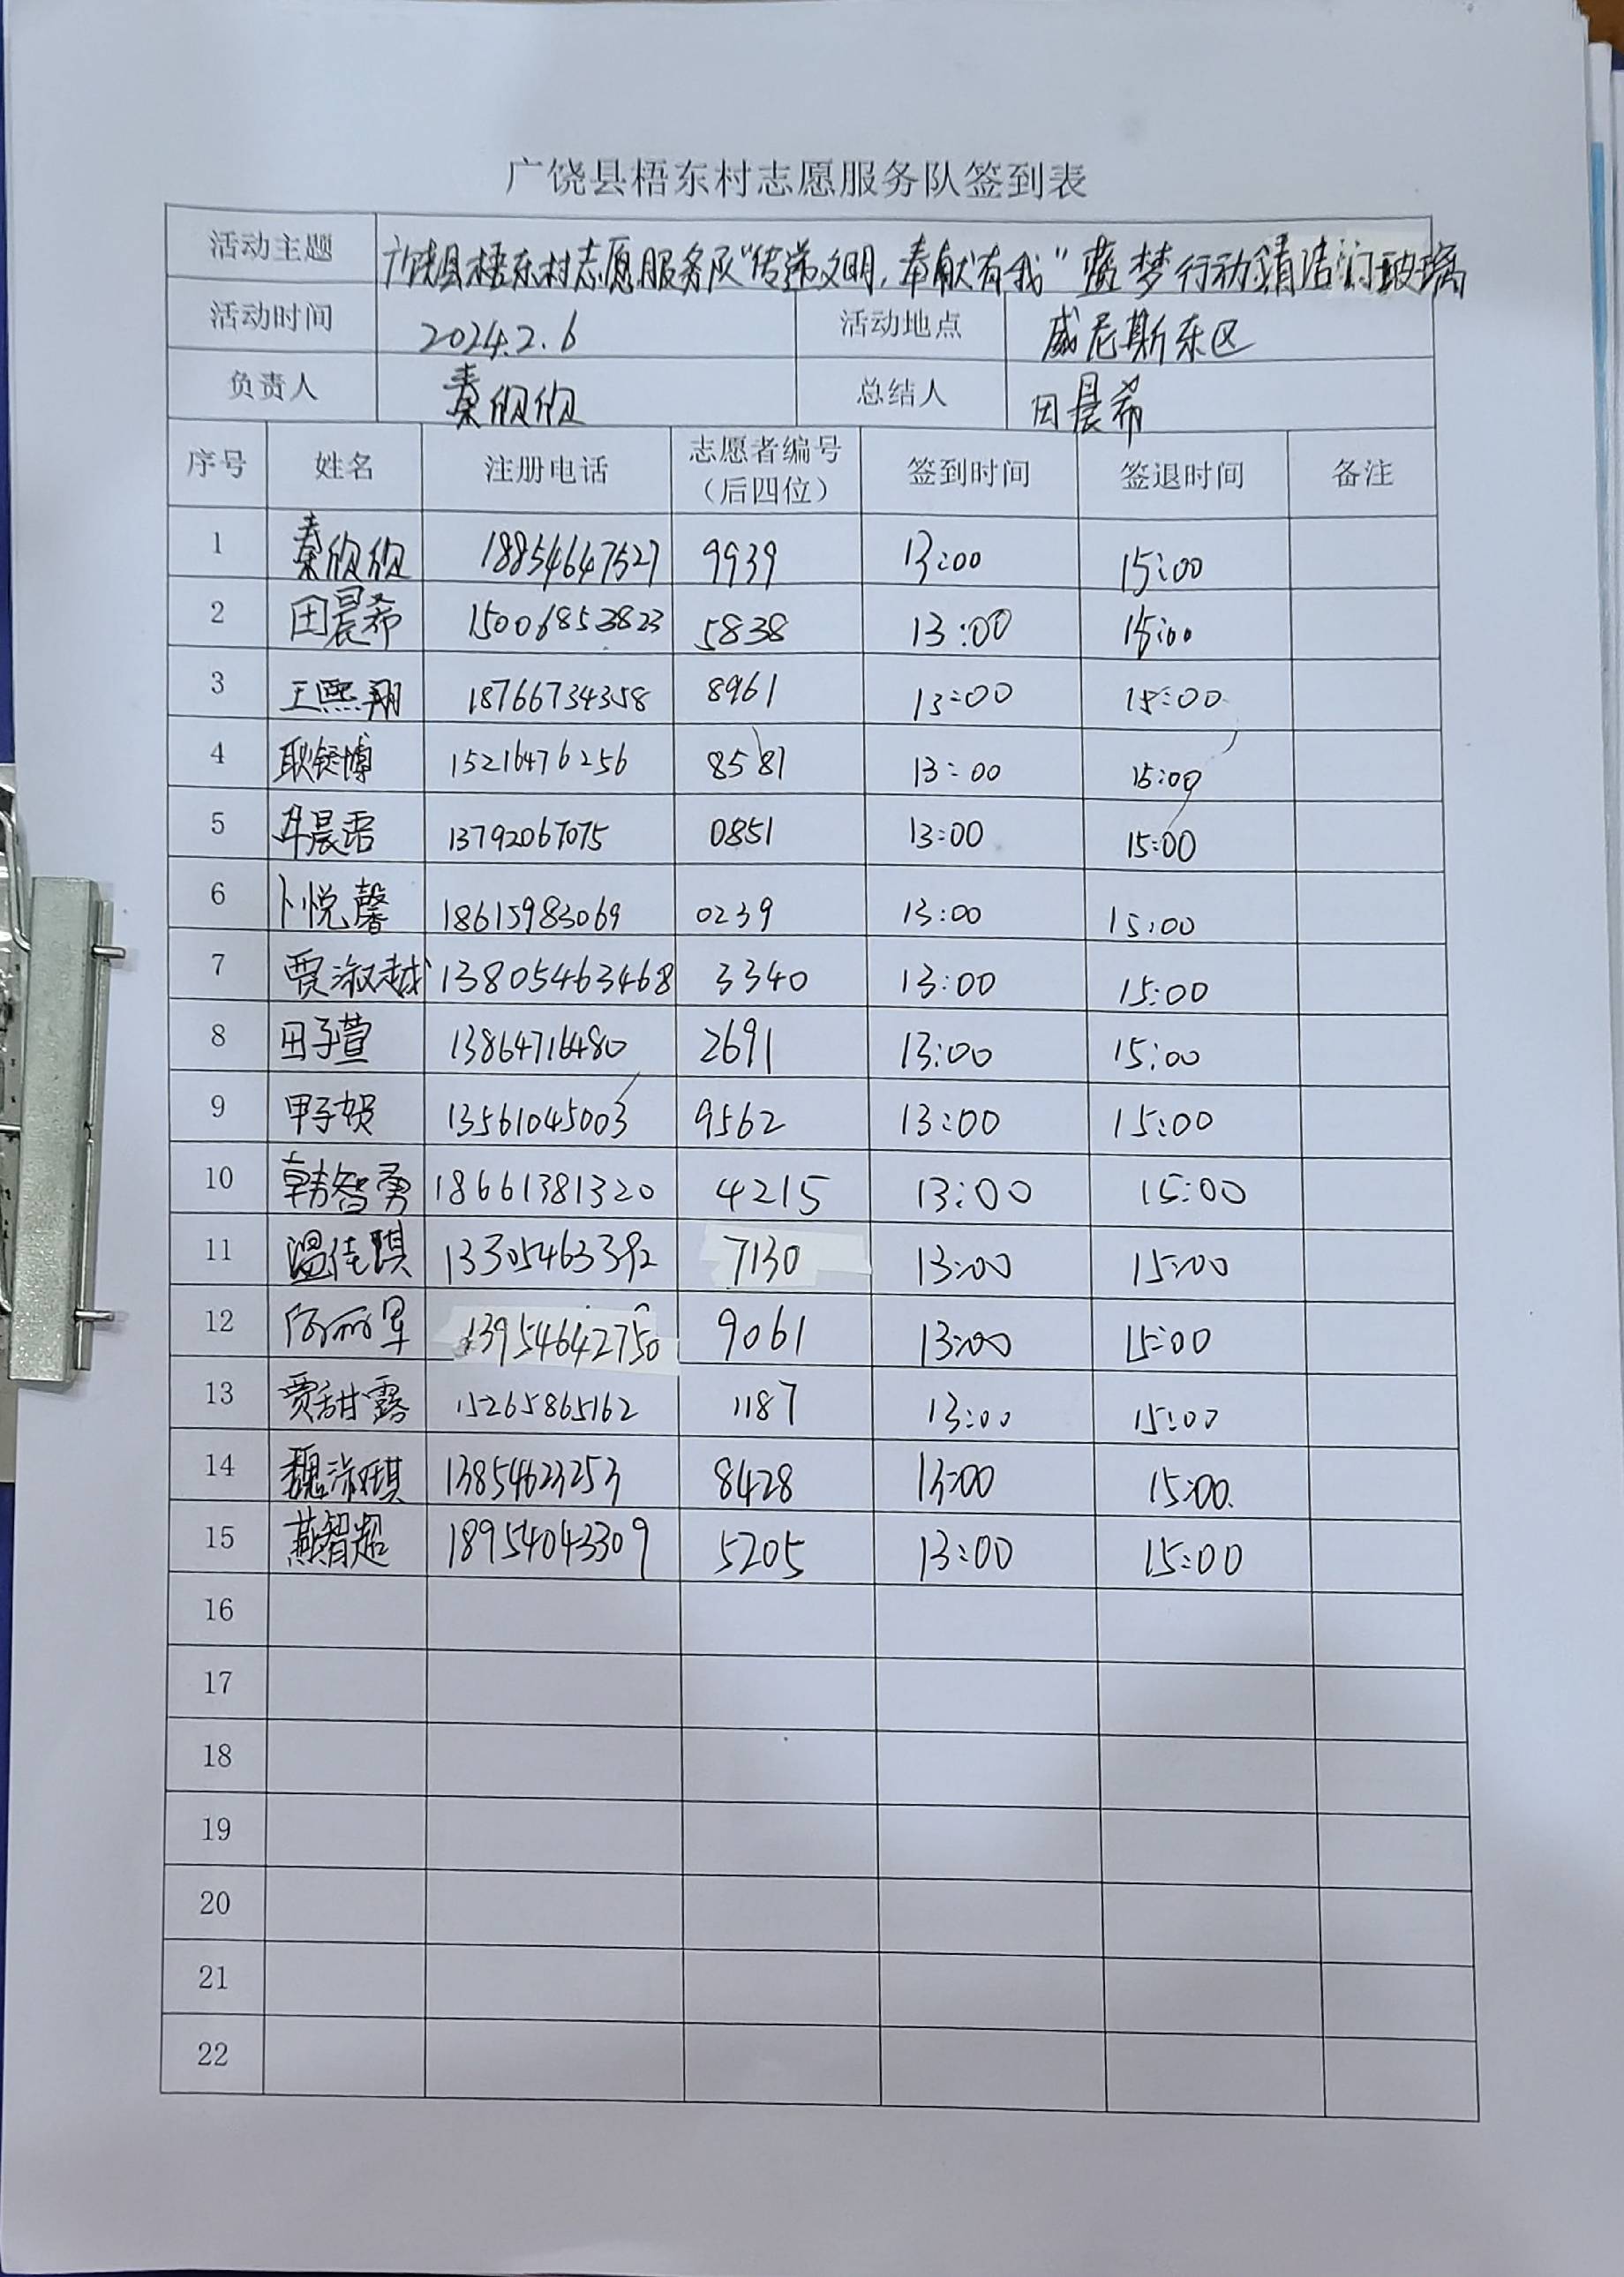 广饶县梧东村志愿服务队签到表
活动主题 广饶县梧东村志愿服务队“传递文明,奉献有我”蓝梦行动清洁门玻璃
活动时间 2024.2.6 活动地点 威尼斯东区
负责人 秦欣欣 总结人 田晨希
序号 姓名 注册电话 志愿者编号(后四位) 签到时间 签退时间 备注
1 秦欣欣 18854647527 9939 13:00 15:00
2 田晨希 15006853823 5838 13:00 15:00
3 王熙翔 18766734358 8961 13:00 15:00
4 耿铥博 15216476256 8581 13:00 15:00
5 晨 13792067075 0851 13:00 15:00
6 卜悦馨 18615983069 0239 13:00 15:00
7 贾淑越 13805463468 3340 13:00 15:00
8 田子萱 13864716480 2691 13:00 15:00
9 子 13561045003 9562 13:00 15:00
10 韩智勇 18661381320 4215 13:00 15:00
11 温佳琪 13305463392 7130 13:00 15:00
12 13954642750 9061 13:00 15:00
13 贾甜露 15265865162 1187 13:00 15:00
14 魏淑琪 13854623253 8428 13:00 15:00
15 燕智超 18954043309 5205 13:00 15:00
16
17
18
19
20
21
22